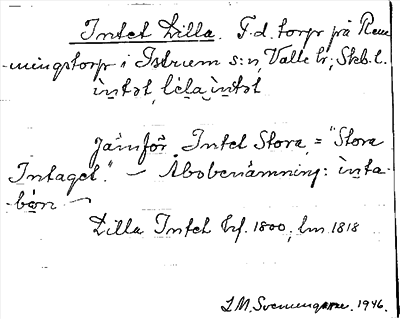 Intet Lilla. F.d. torp på Rem-
-mingstorp i Istrum s:n, Valle hr; Skb.l.
ìntət, lèla ìntət
Jämför Intet Stora = "Stora
Intaget." — Åbobenämning: ìnta-
-bön —
Lilla Intet hf. 1800; lm 1818
1946.